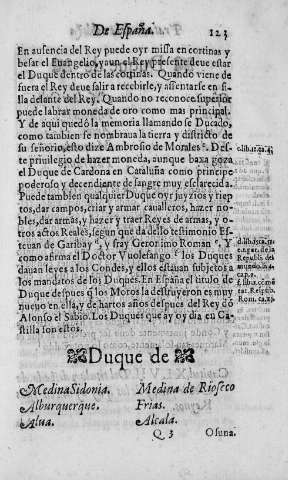 De España. 123
En ausencia del Rey puede oyr missa en cortinas y
besar el Euangelio, y aun el Rey presente deue estar
el Duque dentro de las cortinas. Quando viene de
fuera el Rey deue salir a recebirle, y assentarse en si
lla delante del Rey. Quando no reconoce superior
puede labrar moneda de oro como mas principal.
Y de aqui quedó la memoria llamandose Ducado,
como tambien se nombraua la tierra y districto de
su señorio, esto dize Ambrosio de Morales. Des-
te priuilegio de hazer moneda, aunque baxa goza
el Duque de Cardona en Cataluña como principe
poderoso y decendiente de sangre muy esclarecida.
Puede tambien qualquier Duque oyr juyzios y riep
tos, dar campos, criar y armar caualleros, hazer no-
bles, dar armas, y hazer y traer Reyes de armas, y o-
tros actos Reales, segun que da dello testimonio Es-
teuan de Garibay, y fray Geronimo Roman. Y
como afirma el Doctor Vuolefango los Duques
dauan leyes a los Condes, y ellos estauan subjetos a
los mandatos de los Duques. En España el titulo de
Duque despues q̃ los Moros la destruyeron es muy
nueuo en ella, y de hartos años despues del Rey dõ
Alonso el Sabio. Los Duques que ay oy dia en Ca-
stilla son estos.
Duque de
Medina Sidonia. Medina de Rioseco
Alburquerque. Frias.
Alua. Alcala.
Q 3 Osuna.